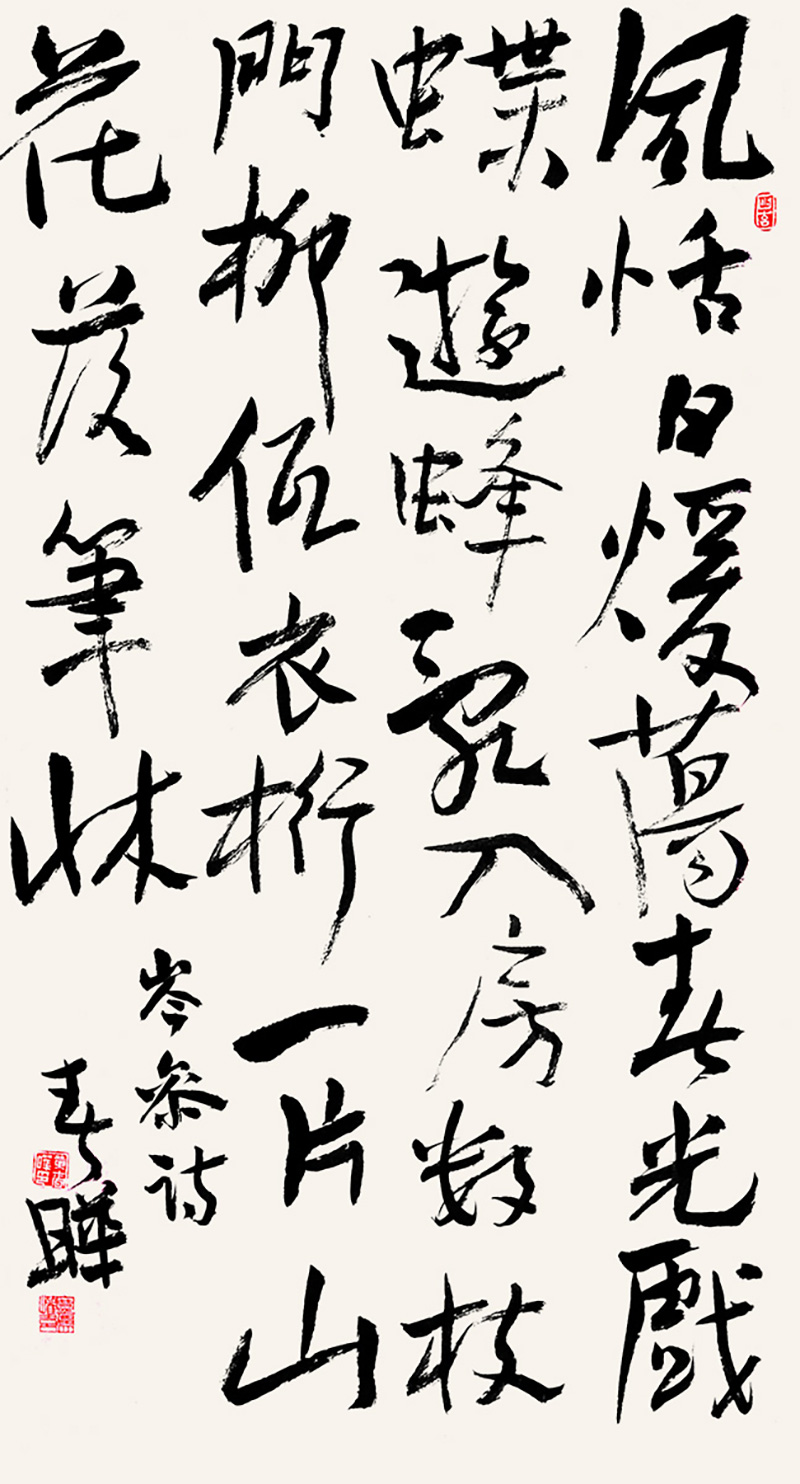 風恬日煖蕩春光戲
蝶遊蜂亂入房數枝
門柳低衣桁一片山
花落筆牀
岑參诗
春曄